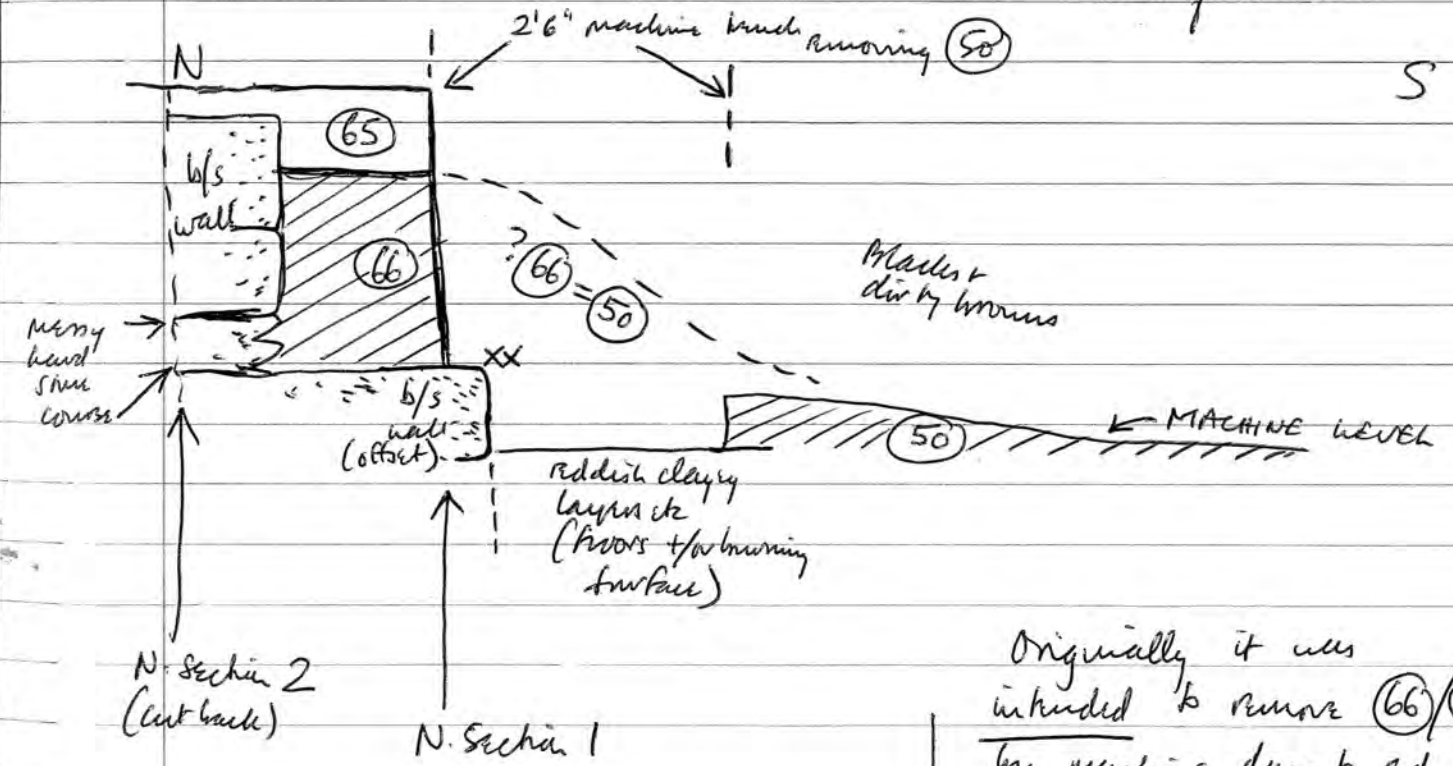 2'6" machine trench removing (50)
N
S
(65)
b/s
wall
(66)
? (66) = (50)
Blacks +
dirty browns
messy
hard
stone
course
xx
b/s
wall
(offset)
(50)
MACHINE LEVEL
reddish clayey
layers etc
(floors +/or burning
surface)
N. Section 2
(cut back)
N. Section 1
Originally it was
intended to remove (66)/(